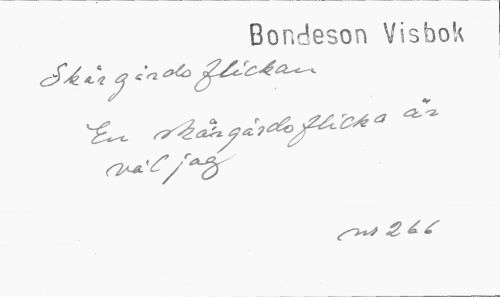 Bondeson Visbok
Skärgårdsflickan
En skärgårdsflicka är
väl jag
nr 266